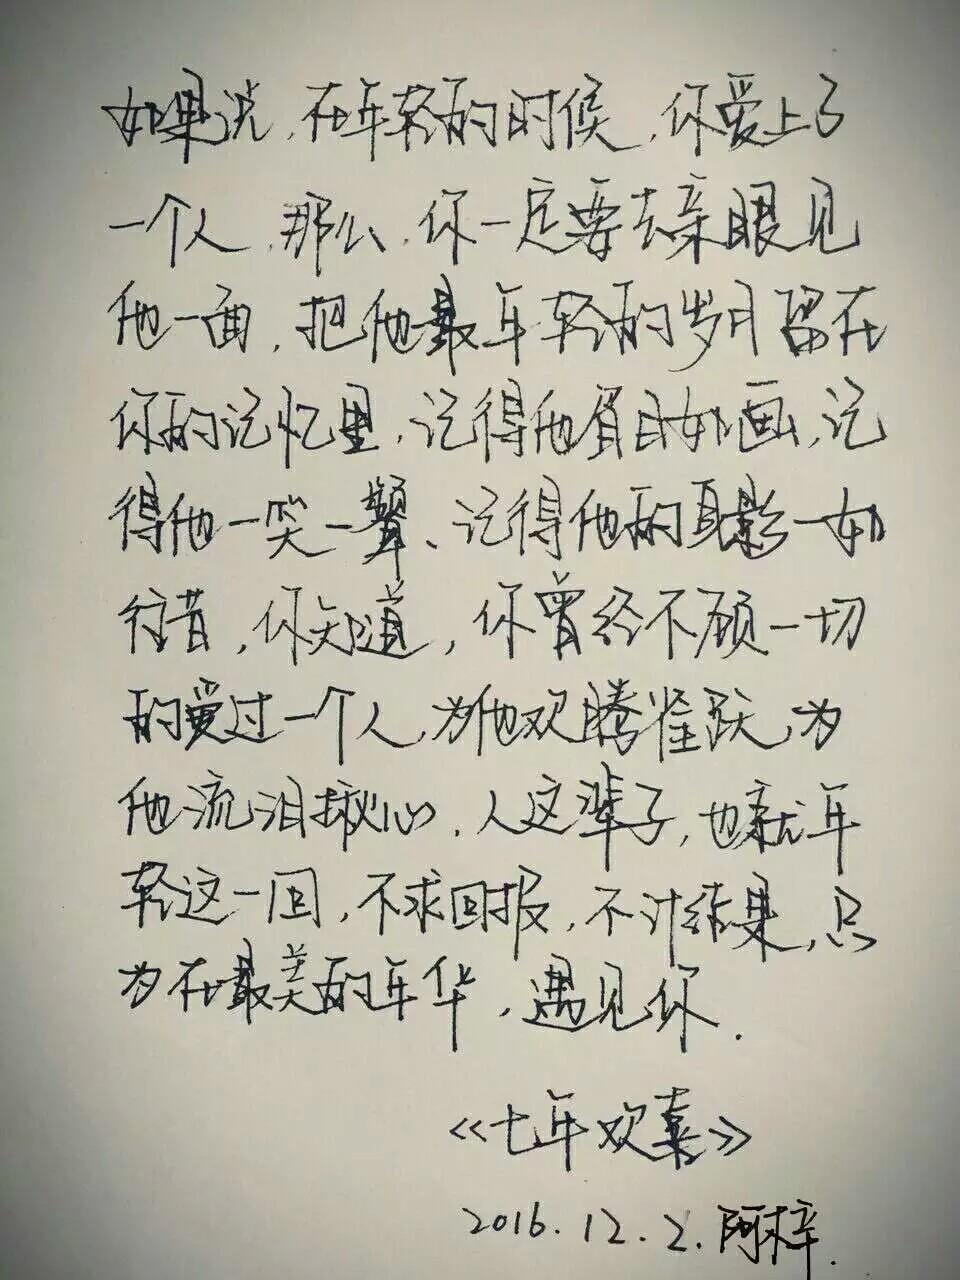 如果说，在年轻的时候，你爱上了
一个人，那么，你一定要去亲眼见
他一面，把他最年轻的岁月留在
你的记忆里，记得他眉目如画，记
得他一笑一颦、记得他的身影一如
往昔，你知道，你曾经不顾一切
的爱过一个人，为他欢腾雀跃，为
他流泪揪心，人这辈子，也就年
轻这一回，不求回报，不计结果，只
为在最美的年华，遇见你．
《七年欢喜》
2016.12.2.阿梓．